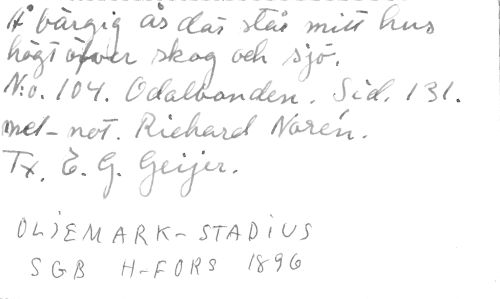 Å bärgig ås där står mitt hus
högt öfver skog och sjö.
N:o. 104. Odalbonden. Sid. 131.
mel-not. Richard Norén.
Tx. E. G. Geijer.
OLJEMARK-STADIUS
SGB H-FORS 1896